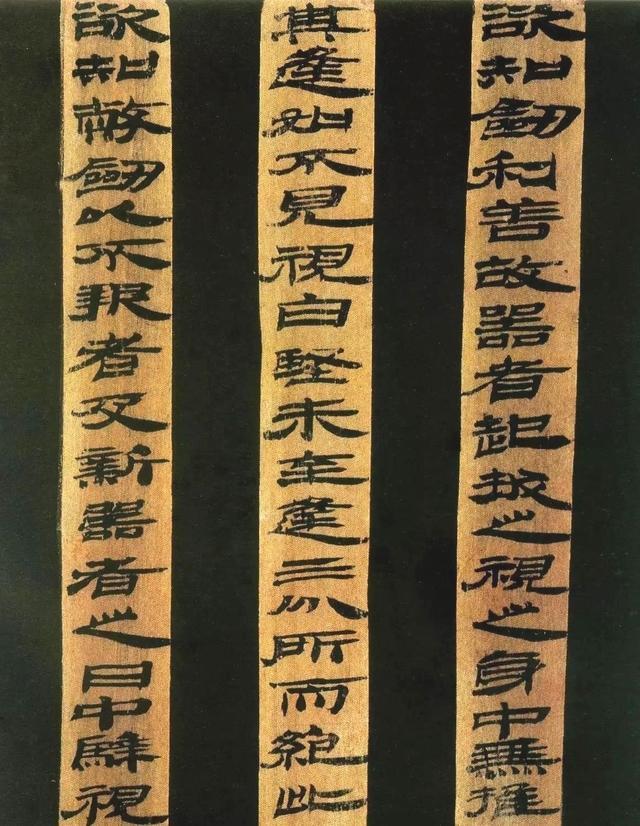 欲知劒利善故器者起拔之視之身中無推
其逢如不見視白堅未至逢三分所而絕此
欲知敝劒以不報者及新器者之日中騂視